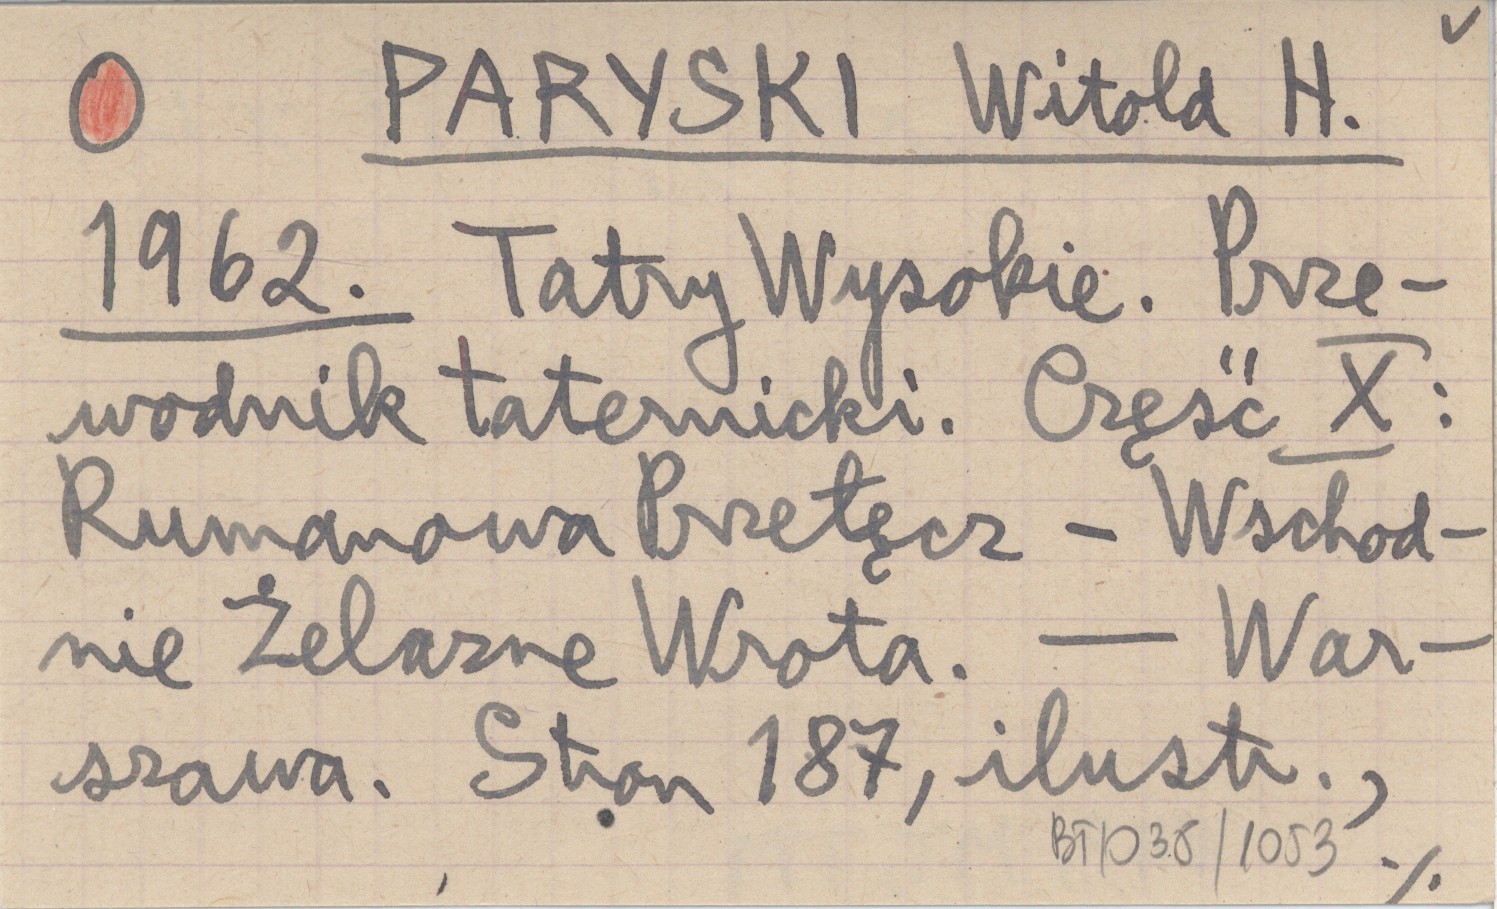 PARYSKI Witold H.
1962. Tatry Wysokie. Prze-
wodnik taternicki. Część X:
Rumanowa Przełęcz - Wschod-
nie Żelazne Wrota. — War-
szawa. Stron 187, ilustr.,
BT/036/1053
./.